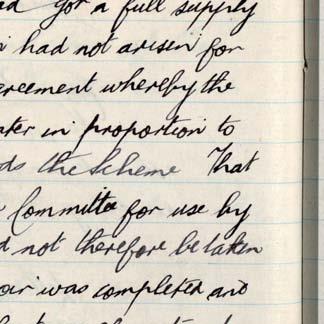 got a full supply
had not arisen for
whereby the
in proportion to
the Scheme That
Committee for use by
not therefore be taken
was completed and